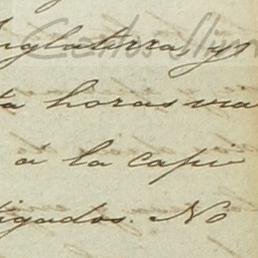 Inglaterra y
ta horas via
á la capi
tigados. No